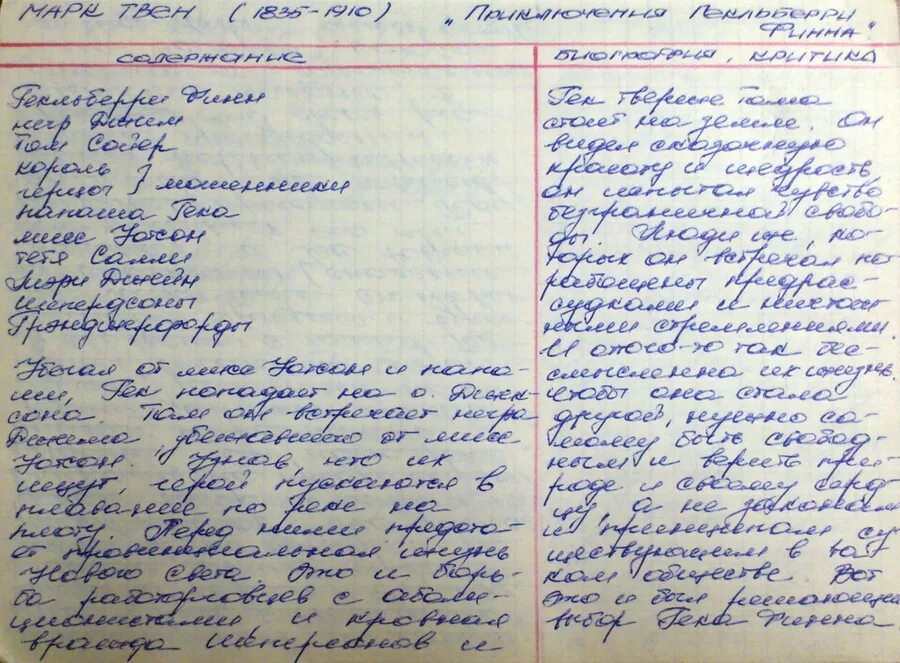 МАРК ТВЕН (1835-1910) „Приключения Гекльберри
Финна"
СОДЕРЖАНИЕ
Гекльберри Финн
негр Джим
Том Сойер
король
герцог } мошенники
папаша Гека
мисс Уотсон
тетя Салли
Мэри Джейн
Шепердсоны
Грэнджерфорды
Убегая от мисс Уотсон и папа-
ши, Гек попадает на о. Джек-
сона. Там он встречает негра
Джима, убежавшего от мисс
Уотсон. Узнав, что их
ищут, герои пускаются в
плавание по реке на
плоту. Перед ними предста-
ет провинциальная жизнь
Нового Света. Это и борь-
ба работорговцев с аболи-
ционистами, и кровная
вражда Шеперсонов и
БИОГРАФИЯ, КРИТИКА
Гек тверже Тома
стоит на земле. Он
видел сказочную
красоту и щедрость,
он испытал чувство
безграничной свобо-
ды. Люди же, ко-
торых он встречал по-
рабощены предрас-
судками и ничтож-
ными стремлениями.
И от того-то так бес-
смысленна их жизнь.
Чтобы она стала
другой, нужно са-
мому быть свобод-
ным и верить при-
роде и своему серд-
цу, а не законам
и принципам су-
ществующим в та-
ком обществе. Вот
это и был решающий
выбор Гека Финна